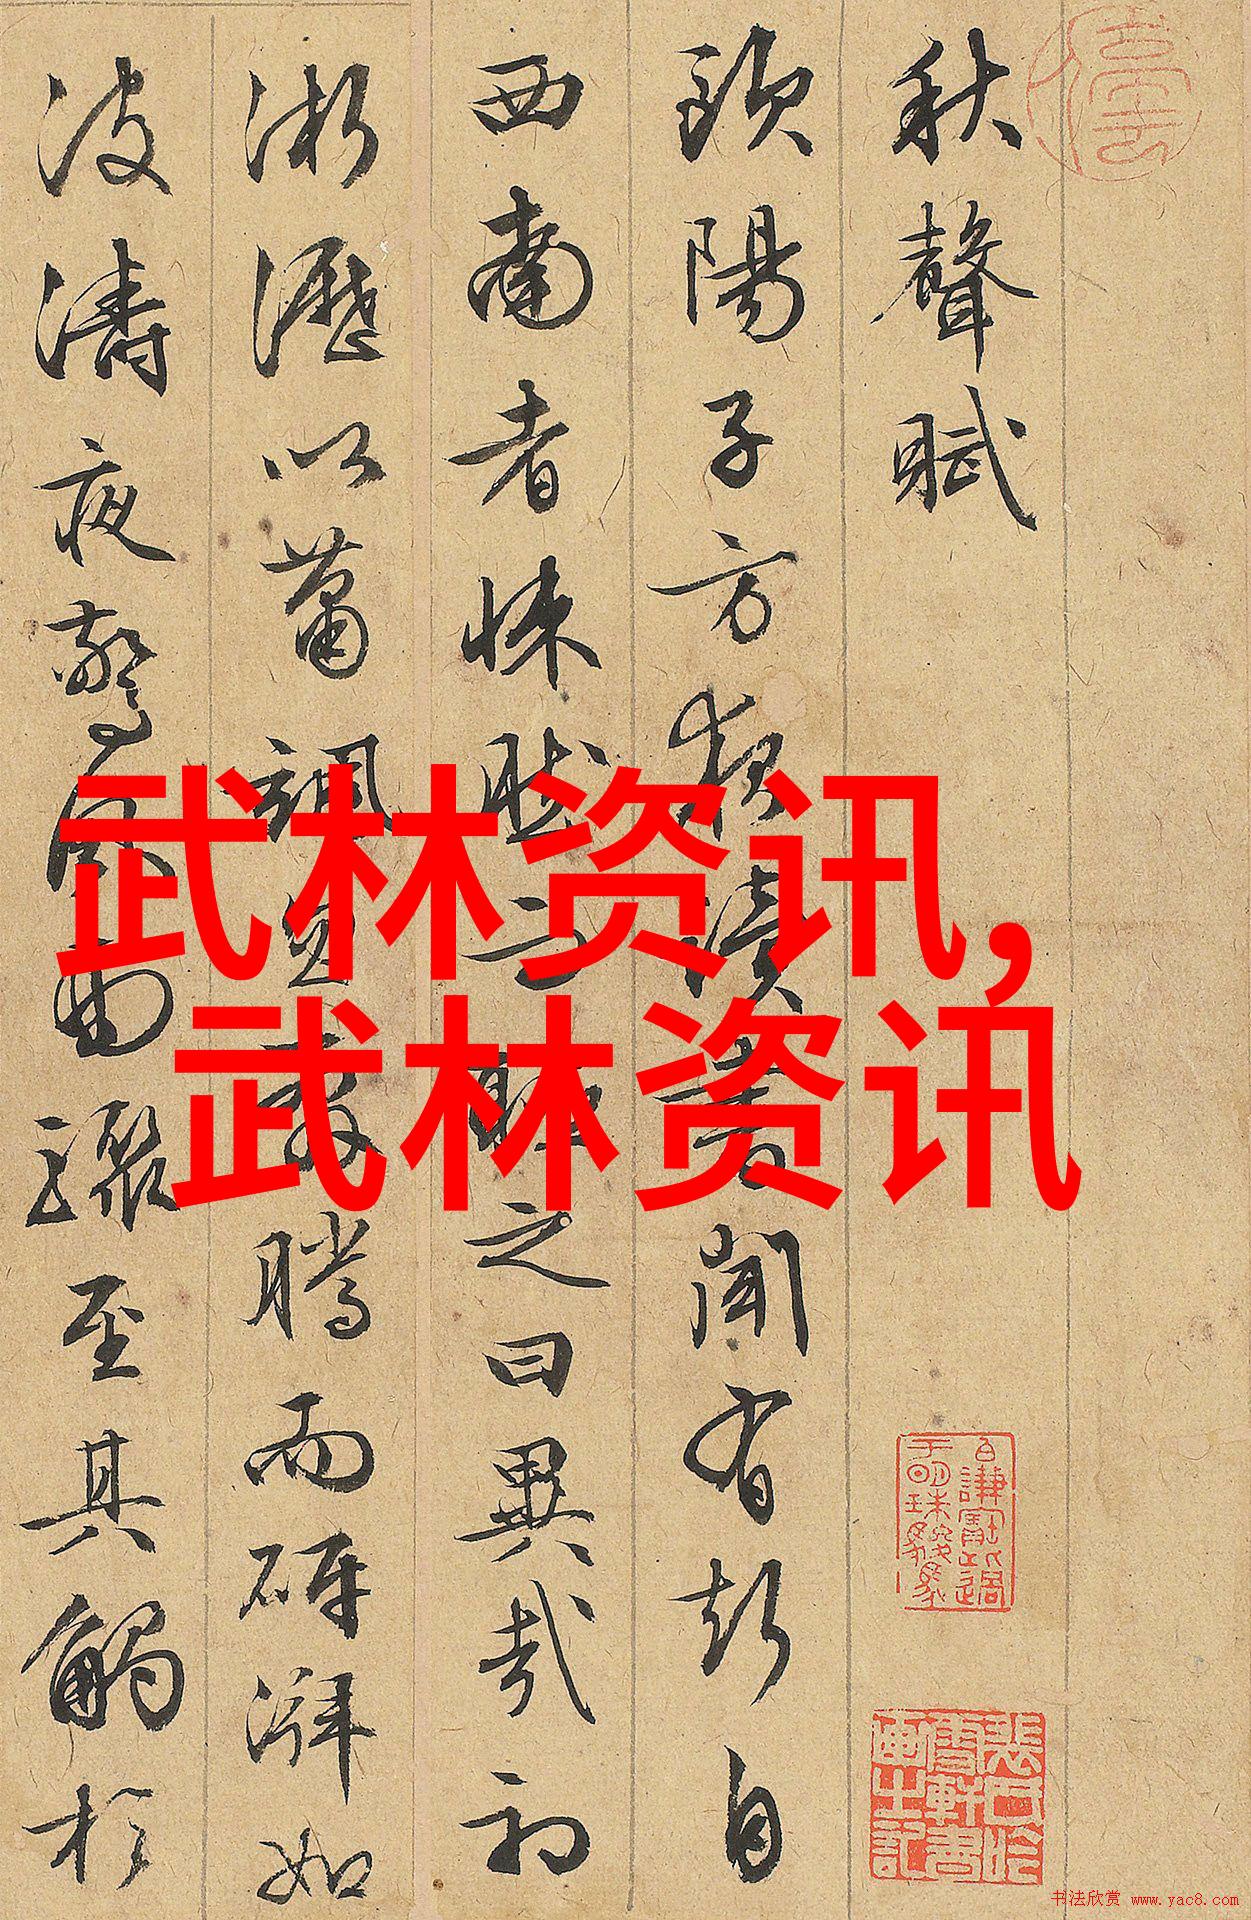 秋聲賦
歐陽子方夜讀書聞有聲自
西南者悚然而聽之曰異哉初
淅瀝以蕭颯忽奔騰而砰湃如
波濤夜驚風雨驟至其觸於
武林资讯,
武林资讯
书法欣赏 www.yac8.com